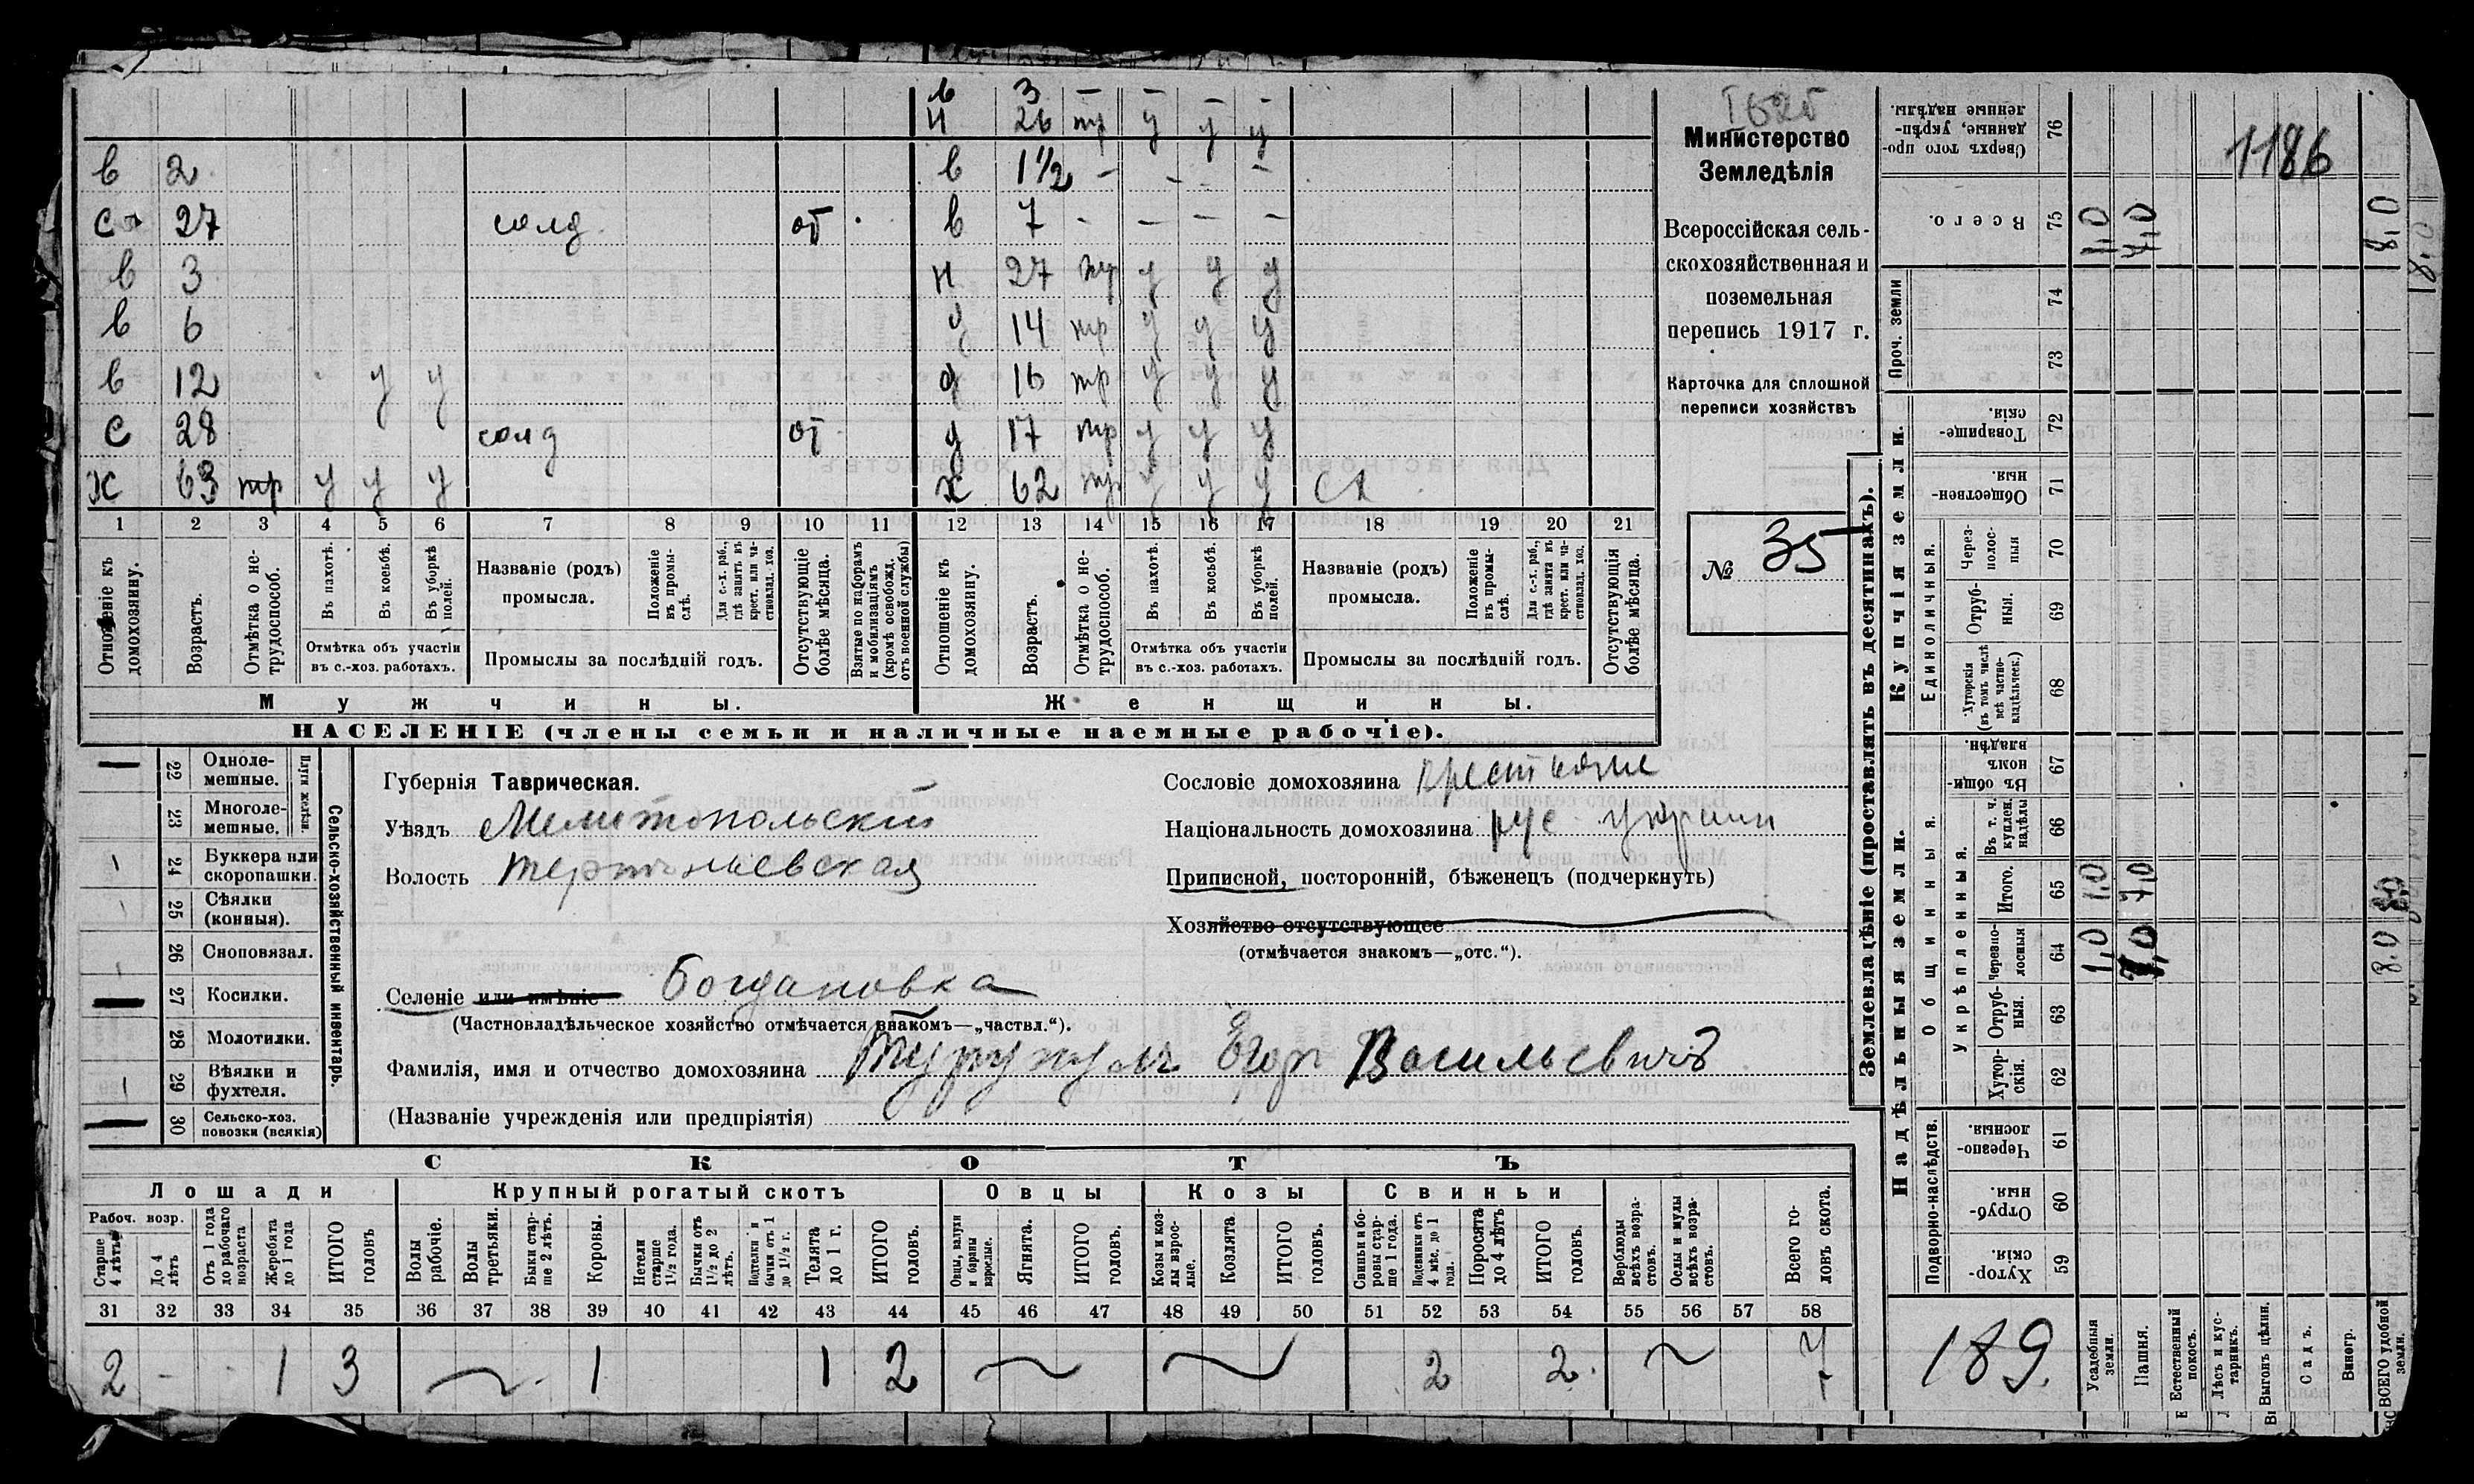 в 3 — — — —
н 26 тр у у у
в 2 в 1½ — — — —
с 27 солд. от в 7 — — — —
в 3 н 27 тр у у у
в 6 д 14 тр у у у
в 12 у у д 16 тр у у у
с 28 солд от д 17 тр у у у
х 63 тр у у у х 62 тр у у у
1 2 3 4 5 6 7 8 9 10 11 12 13 14 15 16 17 18 19 20 21
Отношеніе къ домохозяину.
Возрастъ.
Отмѣтка о не-трудоспособ.
Въ пахотѣ.
Въ косьбѣ.
Въ уборкѣ полей.
Отмѣтка объ участіи
въ с.-хоз. работахъ.
Названіе (родъ)
промысла.
Положеніе въ промы-слѣ.
Для с.-х. раб., гдѣ занятъ въ крест. или ча-стновлад. хоз.
Промыслы за послѣдній годъ.
Отсутствующіе болѣе мѣсяца.
Взятые по наборамъ и мобилизаціямъ (кромѣ освобожд. отъ военной службы)
Отношеніе къ домохозяину.
Возрастъ.
Отмѣтка о не-трудоспособ.
Въ пахотѣ.
Въ косьбѣ.
Въ уборкѣ полей.
Отмѣтка объ участіи
въ с.-хоз. работахъ.
Названіе (родъ)
промысла.
Положеніе въ промы-слѣ.
Для с.-х. раб., гдѣ занята въ крест. или ча-стновлад. хоз.
Промыслы за послѣдній годъ.
Отсутствующія болѣе мѣсяца.
Мужчины. Женщины.
НАСЕЛЕНІЕ (члены семьи и наличные наемные рабочіе).
Министерство
Земледѣлія
Всероссійская сель-
скохозяйственная и
поземельная
перепись 1917 г.
Карточка для сплошной
переписи хозяйствъ
№ 35
22 Одноле-мешные.
23 Многоле-мешные.
Плуги желѣзн.
24 Буккера или скоропашки.
25 Сѣялки (конныя).
26 Сноповязал.
27 Косилки.
28 Молотилки.
29 Вѣялки и фухтеля.
30 Сельско-хоз. повозки (всякія)
Сельско-хозяйственный инвентарь.
Губернія Таврическая.
Уѣздъ Мелитопольскій
Волость
Селеніе или имѣніе Богдановка
(Частновладѣльческое хозяйство отмѣчается знакомъ—„частвл.“).
Фамилія, имя и отчество домохозяина Егор Васильевичъ
(Названіе учрежденія или предпріятія)
Сословіе домохозяина крестьяне
Національность домохозяина рус украин
Приписной, посторонній, бѣженецъ (подчеркнуть)
Хозяйство отсутствующее
(отмѣчается знакомъ—„отс.“).
СКОТЪ
Лошади Крупный рогатый скотъ Овцы Козы Свиньи
Рабоч. возр.
Старше 4 лѣтъ
До 4 лѣтъ
Отъ 1 года до рабочаго возраста
Жеребята до 1 года
ИТОГО головъ
Волы рабочіе.
Волы третьяки.
Быки стар-ше 2 лѣтъ.
Коровы.
Нетели старше 1½ года.
Бычки отъ 1½ до 2 лѣтъ.
Подтелки и бычки отъ 1 до 1½ г.
Телята до 1 г.
ИТОГО головъ.
Овцы, валухи и бараны взрослые.
Ягнята.
ИТОГО головъ.
Козы и коз-лы взрос-лые.
Козлята
ИТОГО головъ.
Свиньи и бо-ровы стар-ше 1 года.
Подсвинки отъ 4 мѣс. до 1 года.
Поросята до 4 лѣтъ
ИТОГО головъ.
Верблюды всѣхъ возра-стовъ.
Ослы и мулы всѣхъ возра-стовъ.
Всего го-ловъ скота.
31 32 33 34 35 36 37 38 39 40 41 42 43 44 45 46 47 48 49 50 51 52 53 54 55 56 57 58
2 - 1 3 1 1 2 2 2. 7
Землевладѣніе (проставлять въ десятинахъ).
Сверхъ того про-данные, укрѣп-ленные надѣлы. 76
Всего. 75 1,0 7,0 8,0
1186
Проч. земли 74 73
Купчія земли.
Товарище-скія. 72
Обществен-ныя. 71
Единоличныя.
Через-полос-ныя 70
Отруб-ныя. 69
Хуторскія (въ томъ числѣ всѣ частно-владѣльческ.) 68
Надѣльныя земли.
Общинныя.
Въ общи-номъ владѣн. 67
Укрѣпленныя.
Въ т. ч. куплен. надѣлы 66
Итого. 65 1,0 7,0 8,0
Черезпо-лосныя 64 1,0 7,0 8,0
Отруб-ныя. 63
Хутор-скія. 62
Подворно-наслѣдств.
Черезпо-лосныя. 61
Отруб-ныя. 60
Хутор-скія. 59
189.
Усадебныя земли.
Пашня.
Естественный покосъ.
Лѣсъ и кус-тарникъ.
Выгонъ цѣлин.
Садъ.
Виногр.
ВСЕГО удобной земли.